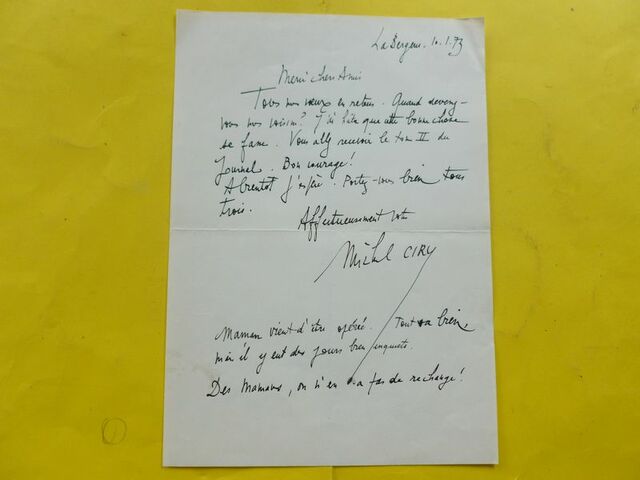 La Bergerie. 10.1.73
Merci chers Amis
Tous nos vœux en retour. Quand devenez-
vous nos voisins? J'ai hâte que cette bonne chose
se fasse. Vous allez recevoir le tome II du
Journal. Bon courage!
A bientôt j'espère. Portez-vous bien tous
trois.
Affectueusement votre
Michel CIRY
Maman vient d'être opérée. Tout va bien,
mais il y eut des jours bien inquiets.
Des Mamans, on n'en a pas de rechange!